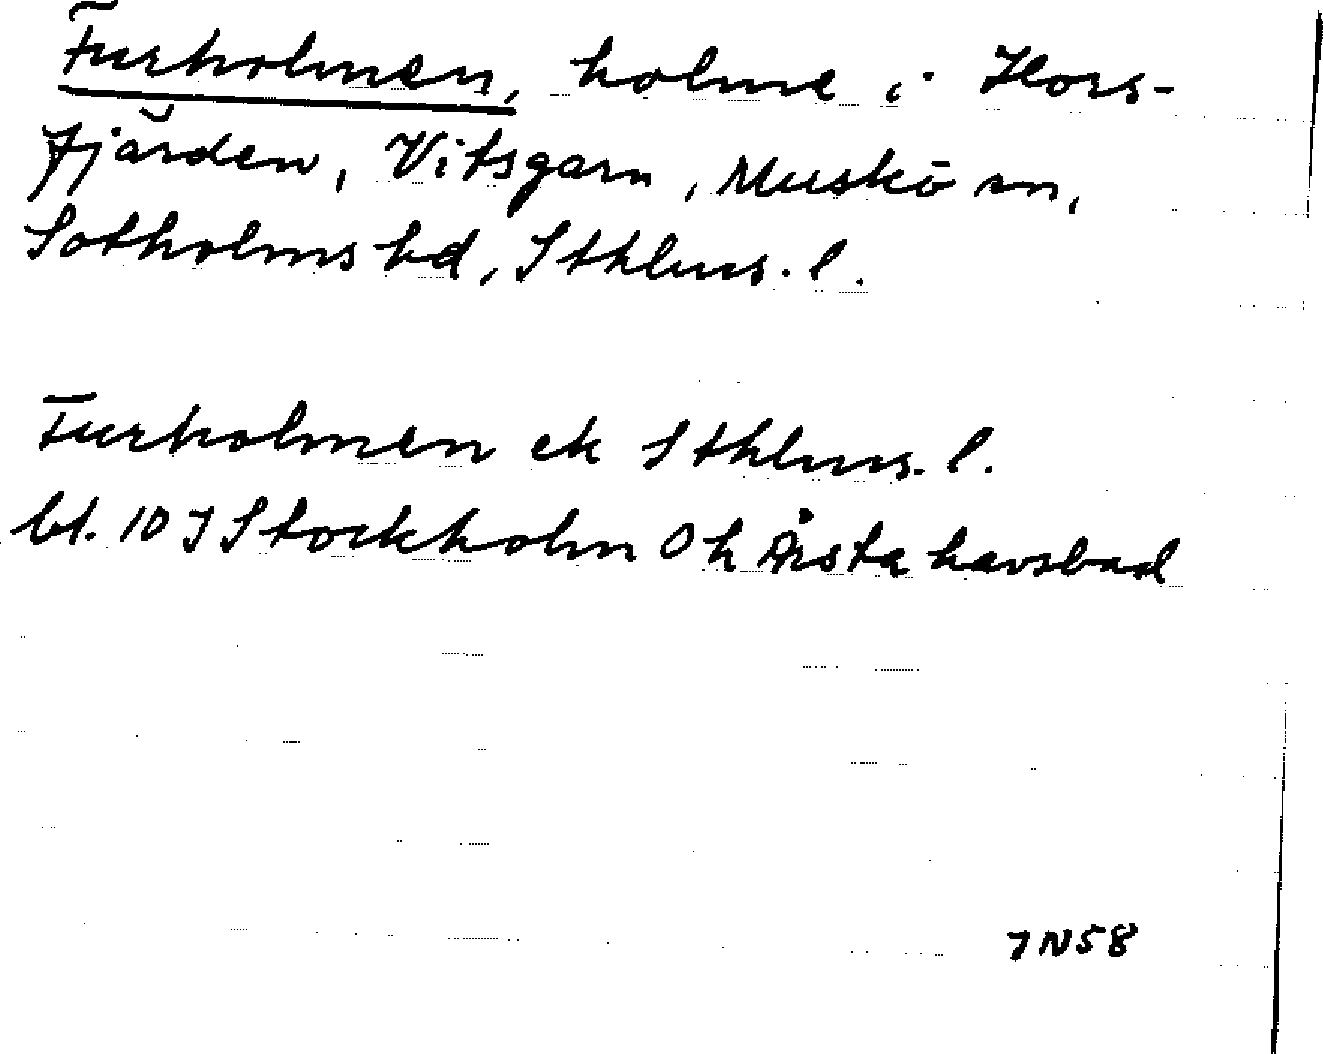 Furholmen, holme i Hors-
fjärden, Vitsgarn, Muskö sn,
Sotholms hd, Sthlms. l.
Furholmen ek Sthlms. l.
bl. 10 I Stockholm Oh Årsta havsbad
7N58